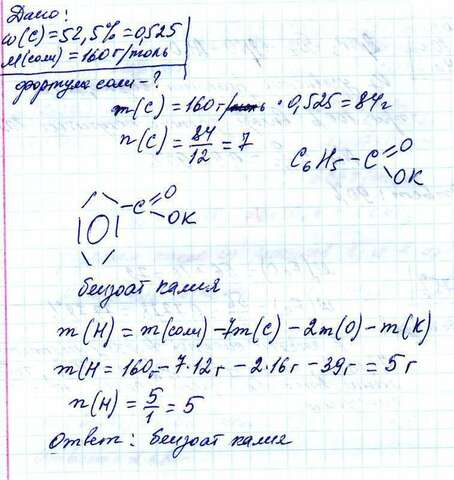 Дано:
ω(C) = 52,5% = 0,525
M(соли) = 160 г/моль
формула соли - ?
m(C) = 160 г/моль · 0,525 = 84 г
n(C) = 84/12 = 7
C₆H₅ – C
O
OK
– C
O
OK
бензоат калия
m(H) = m(соли) – 7m(C) – 2m(O) – m(K)
m(H = 160г – 7·12г – 2·16г – 39г = 5 г
n(H) = 5/1 = 5
Ответ: бензоат калия